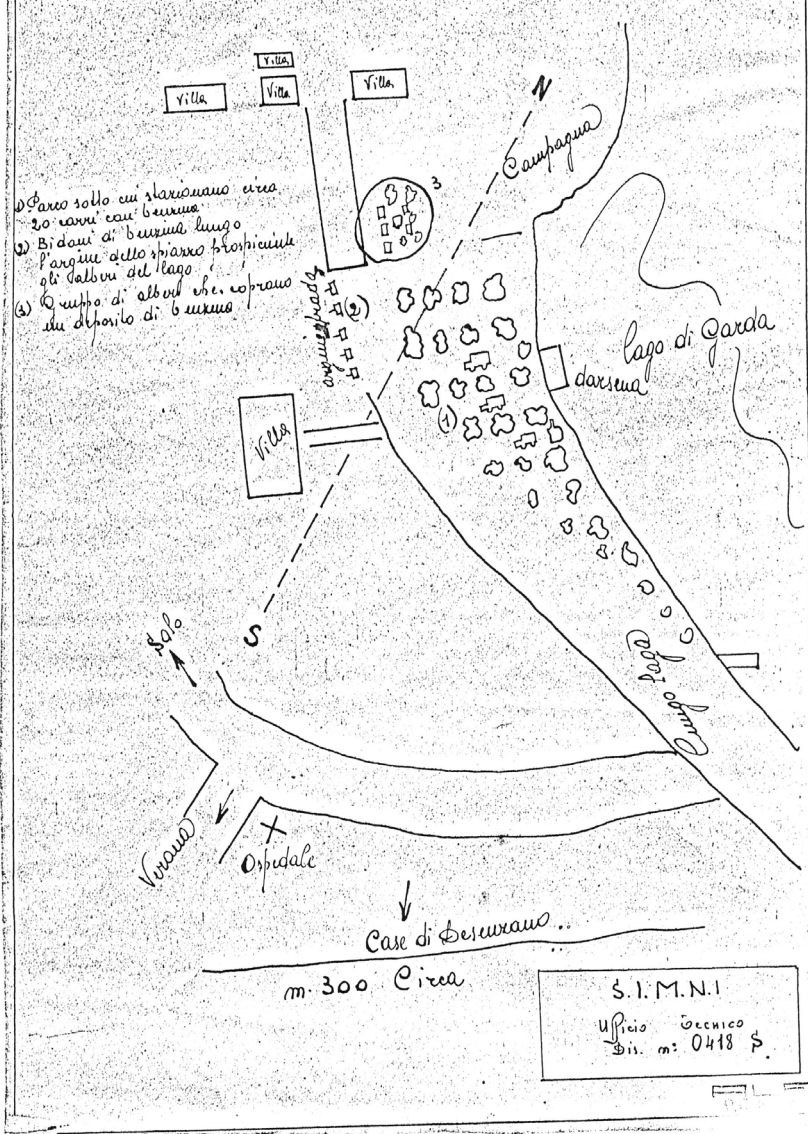 Villa
Villa
Villa
Villa
N
Campagna
1) Parco sotto cui stazionano circa
20 carri con benzina
(2) Bidoni di benzina lungo
l'argine dello spiazzo prospiciente
gli alberi del lago
(3) Gruppo di alberi che coprano
un deposito di benzina
3
(2)
argine strada
lago di Garda
darsena
(1)
Villa
S
Salo
Lungo lago
Verona
Ospedale
Case di Desenzano ..
m. 300 Circa
S.I.M.N.I
Ufficio Tecnico
Dis. n: 0418 S.